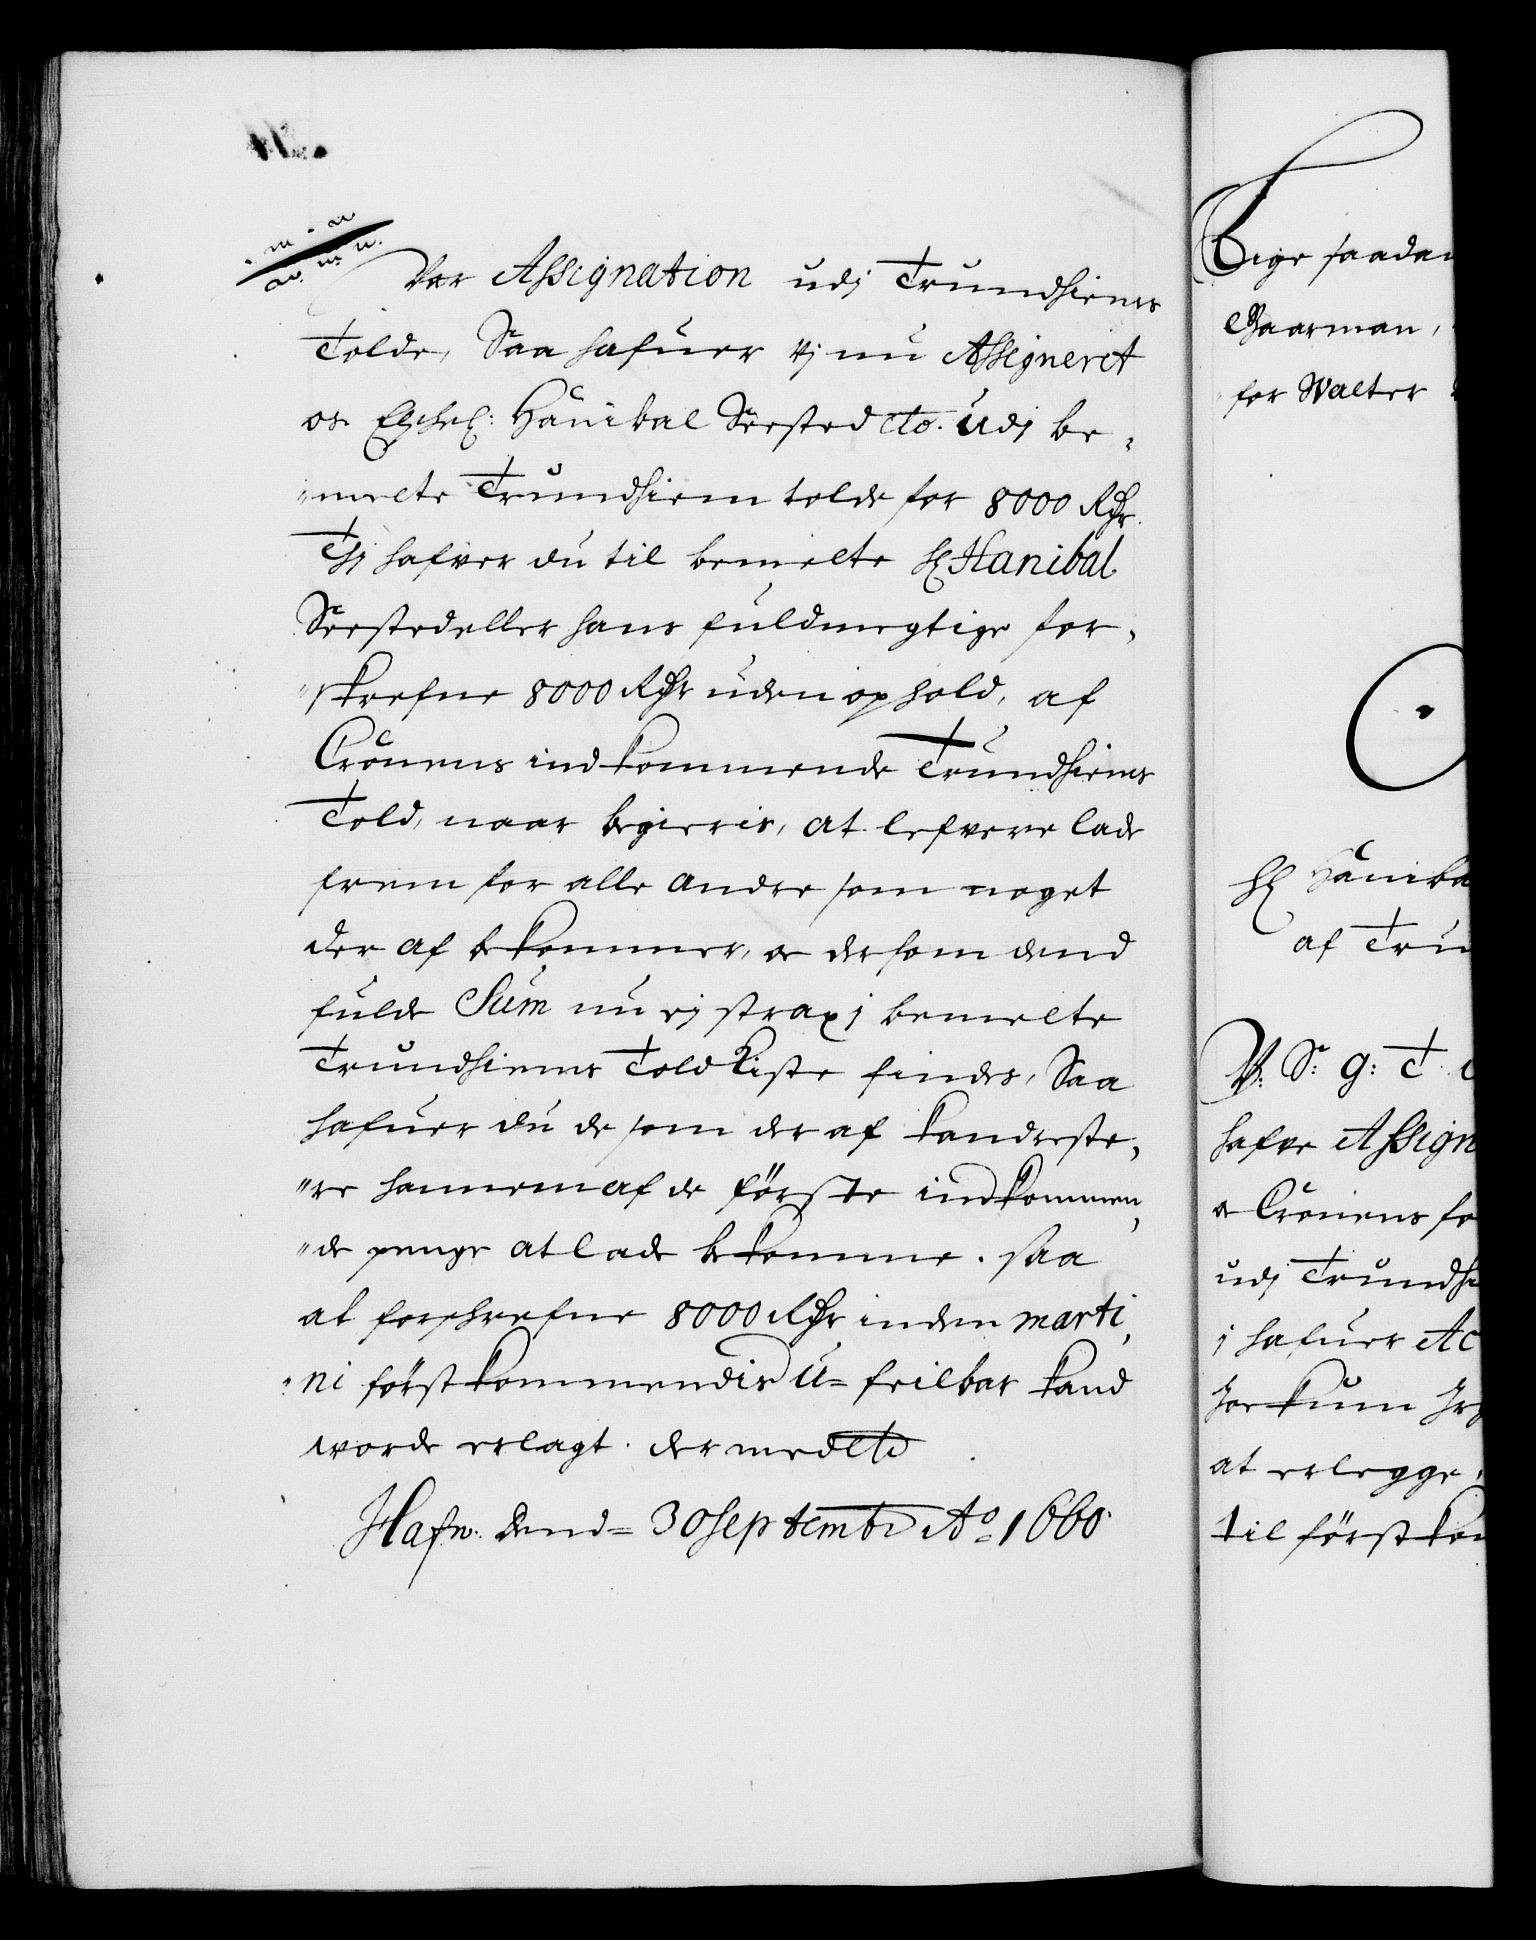 Vor Assignation udj Trundhiems
Tolde, Saa hafuer Vj nu Assigneret
os Hanibal Seested etc. Udj be-
melte Trundhiem tolde for 8000 Rdr.
Thj hafver du til bemelte H: Hanibal
Seested eller hans fuldmegtige for-
skrefne 8000 Rdr uden ophold, af
Cronens indkommende Trundhiems
Told, naar begieris, at lefvere lade
frem for alle andre som noget
der af bekommer, oc dersom dend
fulde Sum nu ej strax j bemelte
Trundhiems Told Kiste findes, Saa
hafuer du de som der af kand reste-
re hannem af de förste indkommen-
de penge at lade bekomme. saa
at forskrefne 8000 Rdr inden marti-
ni förstkommendis U-feilbar kand
worde erlagt. der med etc
Hafn: dend 30 Septembr Ao 1660.
Lige saadan
Gaarman,
for Walter
H: Haniba
af Trun
V: S: g: T.
hafve Assign
oc Cronens fo
udj Trundhi
j hafuer Ac
at erlegge,
til förstkom